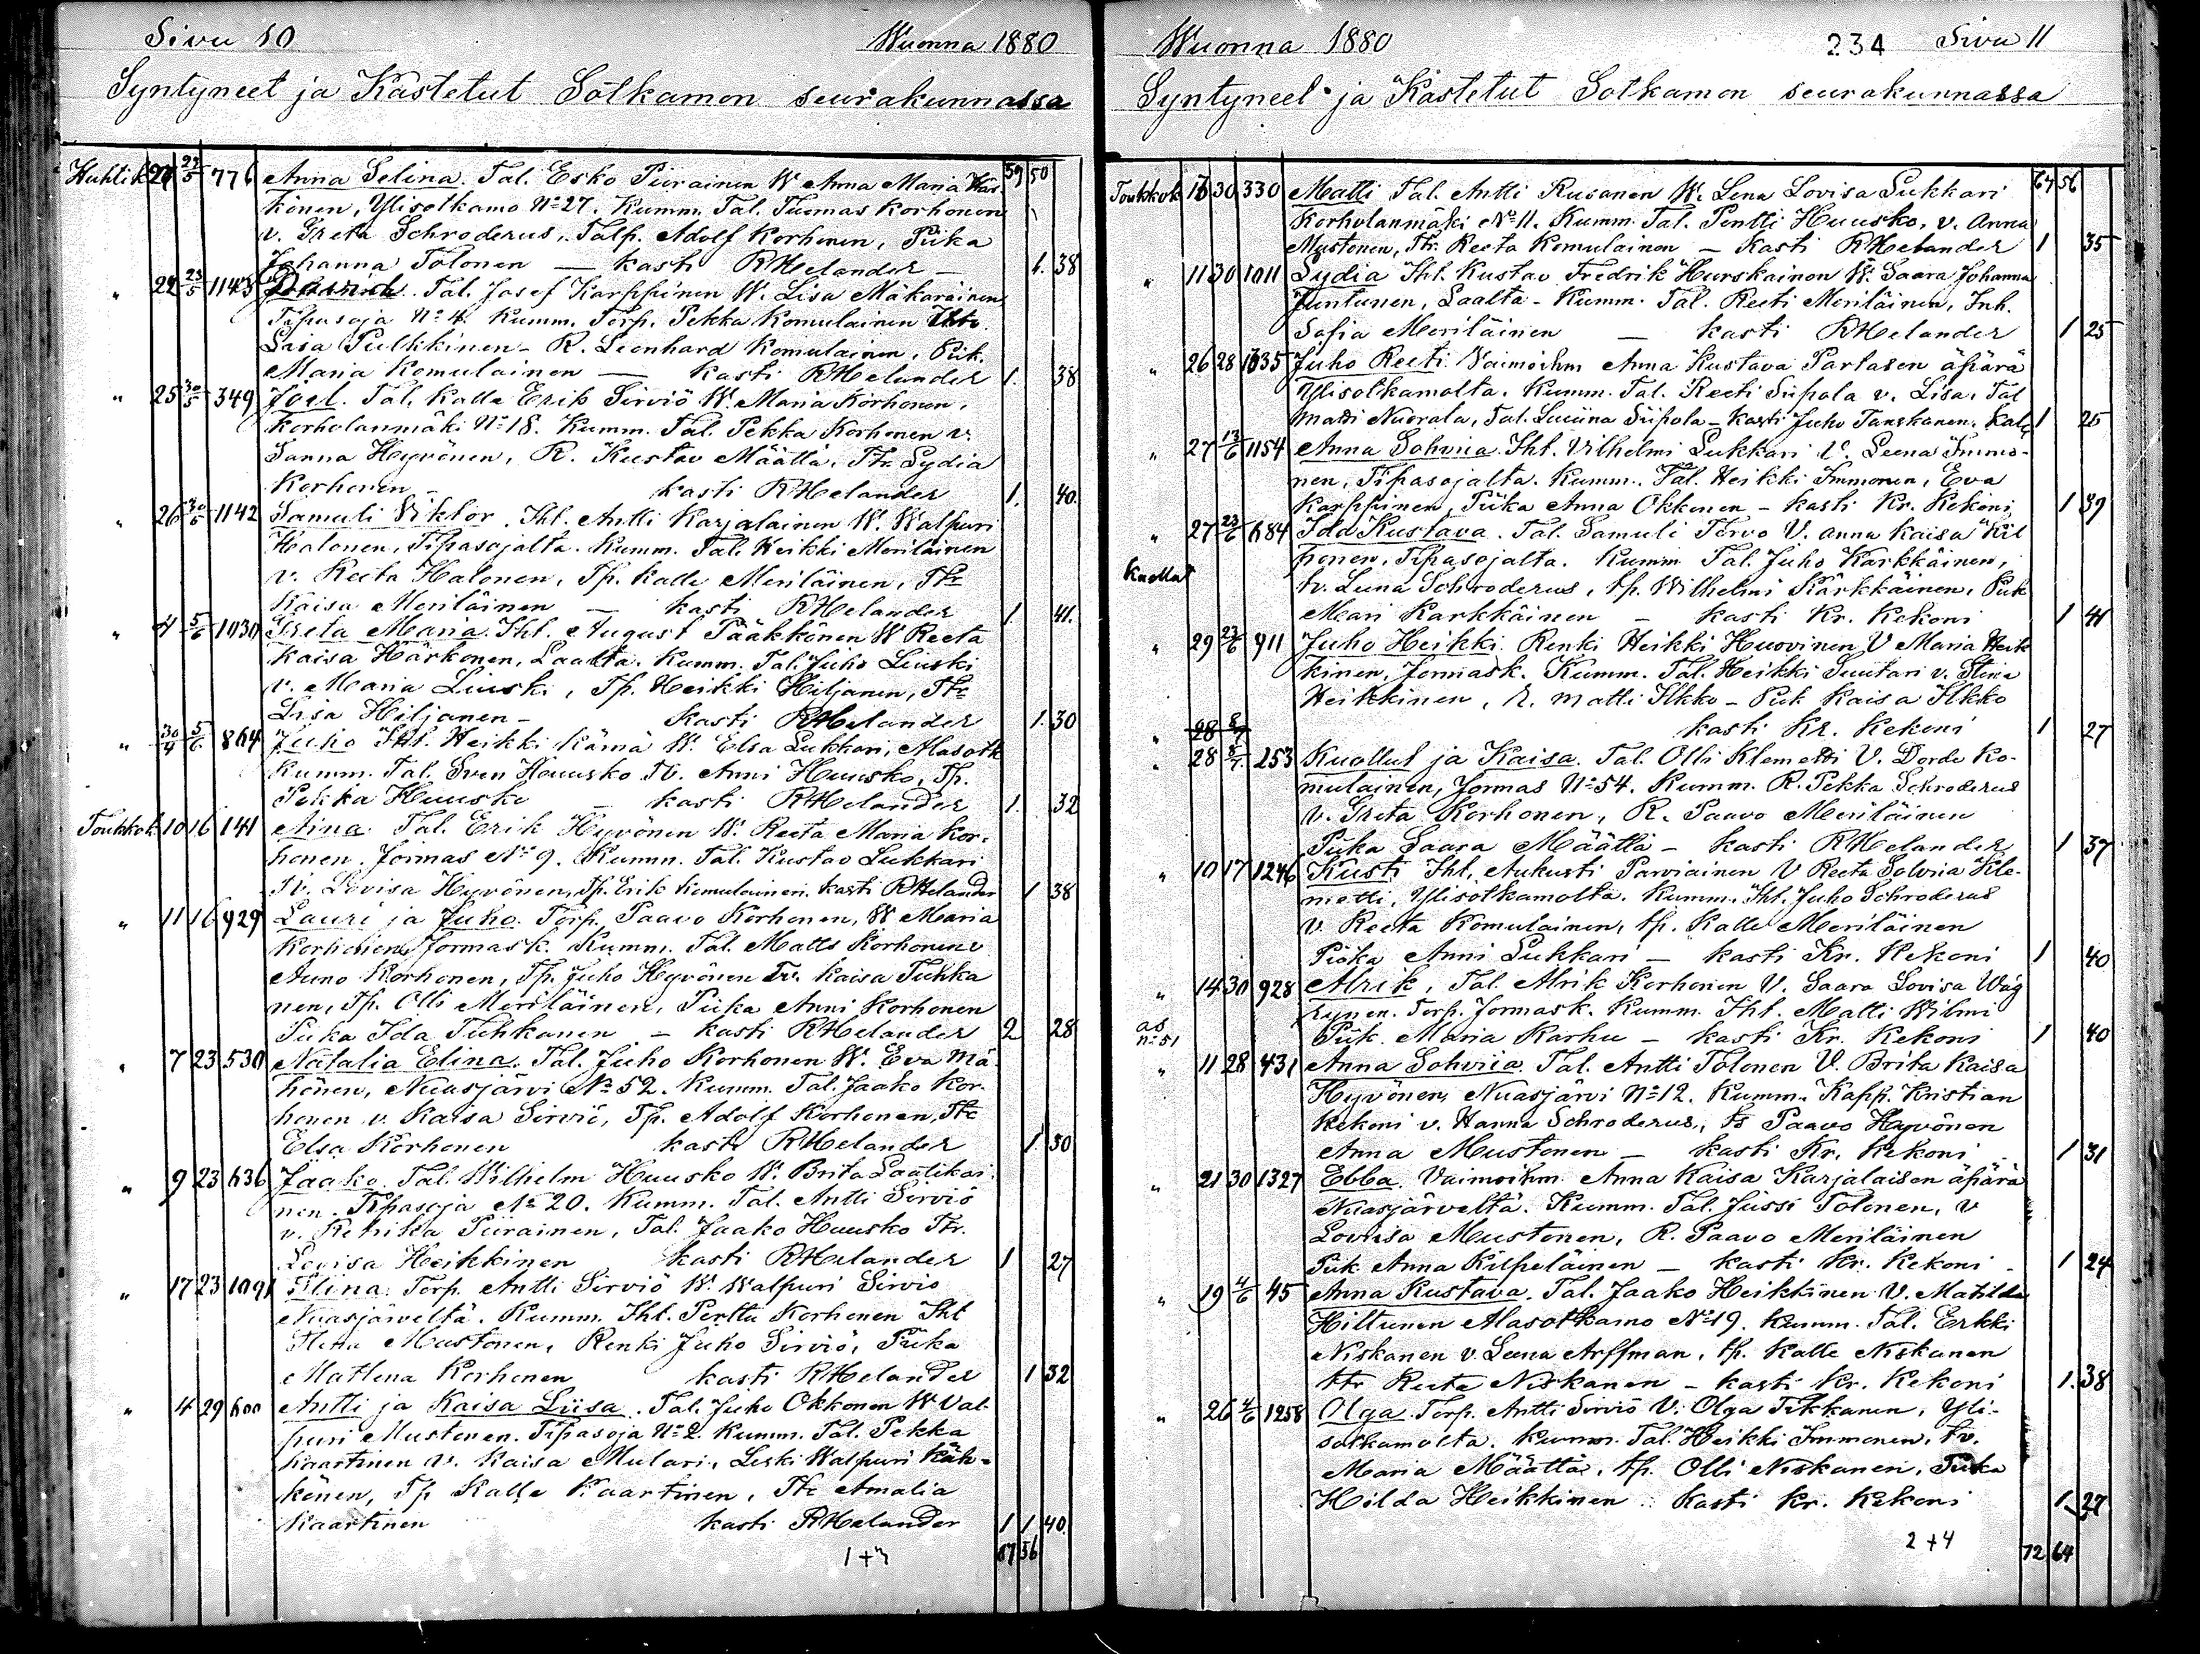 Sivu 10 Wuonna 1880
Syntyneet ja Kastetut Sotkamon seurakunnassa
59 50
Huhtik 24 23/5 776 Anna Selina. Tal. Esko Piirainen W Anna Maria Här-
könen, Ylisotkamo No 27. Kumm. Tal. Tuomas Korhonen
v. Greta Schroderus, Talp. Adolf Korhonen, Piika
Johanna Tolonen — kasti RHelander — 1. 38
" 22 23/5 1143 Tal. Josef Karppinen W. Lisa Mäkäräinen
Tipasoja No 4. Kumm. Torp. Pekka Komulainen
Lisa Pulkkinen - R. Leonhard Komulainen, Piik.
Maria Komulainen — kasti RHelander 1. 38
" 25 30/5 349 Joel. Tal. Kalle Erik Sirviö W. Maria Korhonen,
Korholanmäki No 18. Kumm. Tal. Pekka Korhonen v.
Sanna Hyvönen, R. Kustav Määttä, Ttr Lydia
Korhonen — kasti RHelander 1. 40.
" 26 30/5 1142 Samuli Viktor. Itl. Antti Karjalainen W. Walpuri
Halonen, Tipasojalta. Kumm. Tal. Heikki Meriläinen
v. Reeta Halonen, Tp. Kalle Meriläinen, Ttr
Kaisa Meriläinen — kasti RHelander 1. 41.
" 4 5/6 1030 Greta Maria. Itl. August Pääkkönen W Reeta
Kaisa Härkönen, Laalta. Kumm. Tal. Juho Liuski
v. Maria Liuski, Tp. Heikki Hiljanen, Ttr
Lisa Hiljanen - kasti RHelander 1. 30
" 30/4 5/6 864 Juho Itl. Heikki Kämä W. Elsa Lukkari, Alasotk
Kumm. Tal. Sven Huusko Tv. Anni Huusko, Tp.
Pekka Huusko — kasti RHelander 1. 32
Toukkok 10 16 141 Aina. Tal. Erik Hyvönen W. Reeta Maria Kor-
honen. Jormas No 9. Kumm. Tal. Kustav Lukkari
Tv. Lovisa Hyvönen, Tp. Erik Komulainen. kasti RHelander 1 38
" 11 16 929 Lauri ja Juho. Torp. Paavo Korhonen, W Maria
Korhonen Jormask. Kumm. Tal. Matts Korhonen v
Auno Korhonen, Tp. Juho Hyvönen Tv. Kaisa Tuhka
nen, Tp. Olli Meriläinen, Piika Anni Korhonen
Piika Ida Tuhkanen — kasti RHelander 2 28
" 7 23 530 Natalia Elina. Tal. Juho Korhonen W. Eva Mä-
hönen, Nuasjärvi No 52. Kumm. Tal. Jaako Kor-
honen v. Kaisa Sirviö, Tp. Adolf Korhonen, Ttr
Elsa Korhonen kasti RHelander 1 30
" 9 23 636 Jaako. Tal. Wilhelm Huusko W. Brita Laatikai-
nen. Tipasoja No 20. Kumm. Tal. Antti Sirviö
v. Piirainen, Tal. Jaako Huusko Ttr.
Lovisa Heikkinen kasti RHelander 1 27
" 17 23 1091 Elina. Torp. Antti Sirviö W. Walpuri Sirviö
Nuasjärveltä. Kumm. Itl. Perttu Korhonen Itl
Mustonen, Renki Juho Sirviö, Piika
Matlena Korhonen kasti RHelander 1 32
" 4 29 600 Antti ja Kaisa Liisa. Tal. Juho Okkonen W Val-
puri Mustonen. Tipasoja No 2. Kumm. Tal. Pekka
Kaartinen v. Kaisa Mulari, Leski Walpuri Käh-
könen, Tp Kalle Kaartinen, Ttr Amalia
Kaartinen kasti RHelander 1 1 40
67 56
Wuonna 1880 234 Sivu 11
Syntyneet ja Kastetut Sotkamon seurakunnassa
67 56
Toukkok 16 30 330 Matti Tal. Antti Rusanen W. Lena Lovisa Lukkari
Korholanmäki No 11. Kumm. Tal. Pentti Huusko, v. Anna
Mustonen, Ttr. Reeta Komulainen — kasti RHelander 1 35
" 11 30 1011 Lydia Itl. Kustav Fredrik Hurskainen W. Saara Johanna
Juntunen, Laalta - Kumm. Tal. Reeti Meriläinen, Inh.
Sofia Meriläinen — kasti RHelander 1 25
" 26 28 1335 Juho Reeti. Vaimoihm Anna Kustava Partasen äpärä
Ylisotkamolta. Kumm. Tal. Reeti Siipola v. Lisa, Tal
Matti Nuorala, Tal. Siipola - kasti Juho Tanskanen, Kal 1 25
" 27 13/6 1154 Anna Sohviia. Itl. Vilhelmi Lukkari V. Leena Immo-
nen, Tipasojalta. Kumm. Tal. Heikki Immonen, Eva
Karppinen, Piika Anna Okkonen - kasti Kr. Kekoni 1 39
" 27 23/6 684 Ida Kustava. Tal. Samuli Tervo V. Anna Kaisa Kil
ponen, Tipasojalta. Kumm Tal. Juho Karkkäinen,
Kuollut
tv. Leena Schroderus, tp. Wilhelmi Kärkkäinen, Piik
Mari Karkkäinen — kasti Kr. Kekoni 1 41
" 29 23/6 911 Juho Heikki. Renki Heikki Huovinen V Maria Heik
kinen, Jormask. Kumm. Tal. Heikki Suutari v. Stina
Heikkinen, R. Matti Ilkko - Piik Kaisa Ilkko
" 28 8/7 kasti Kr. Kekoni 1 27
" 28 8/7 253 Kuollut ja Kaisa. Tal. Olli Klemetti V. Dorde Ko-
mulainen, Jormas No 54. Kumm. R. Pekka Schroderus
v. Greta Korhonen, R. Paavo Meriläinen
Piika Saara Määttä — kasti RHelander 1 37
" 10 17 1246 Kusti Itl. Aukusti Parviainen V Reeta Solviia Kle-
metti, Ylisotkamolta. Kumm. Itl. Juho Schroderus
v. Reeta Komulainen, tp. Kalle Meriläinen
Piika Anni Lukkari — kasti Kr. Kekoni 1 40
" 14 30 928 Alrik, Tal. Alrik Korhonen V. Saara Lovisa Wäy
rynen. Torp. Jormask. Kumm. Itl. Matti Wilmi
as No 51 Piik. Maria Karhu — kasti Kr. Kekoni 1 40
" 11 28 431 Anna Sohviia. Tal. Antti Tolonen V. Brita Kaisa
Hyvönen, Nuasjärvi No 12. Kumm. Kapp. Kristian
Kekoni v. Hanna Schroderus, Paavo Hyvönen
Anna Mustonen — kasti Kr. Kekoni 1 31
" 21 30 1327 Ebba. Vaimoihm Anna Kaisa Karjalaisen äpärä
Nuasjärveltä. Kumm. Tal. Jussi Tolonen, v
Lovisa Mustonen, R. Paavo Meriläinen
Piik Anna Kilpeläinen — kasti Kr. Kekoni 1 24
" 19 4/6 45 Anna Kustava. Tal. Jaako Heikkinen V. Matilda
Hiltunen Alasotkamo No 19. Kumm. Tal. Erkki
Niskanen v. Leena Arffman, tp. Kalle Niskanen
ttr Reeta Niskanen — kasti Kr. Kekoni 1. 38
" 26 4/6 1258 Olga. Torp. Antti Sirviö V. Olga Tikkanen, Yli-
sotkamolta. Kumm. Tal. Heikki Immonen, tv.
Maria Määttä, tp. Olli Niskanen, Piika
Hilda Heikkinen. kasti Kr. Kekoni 1 27
2 + 4 72 64